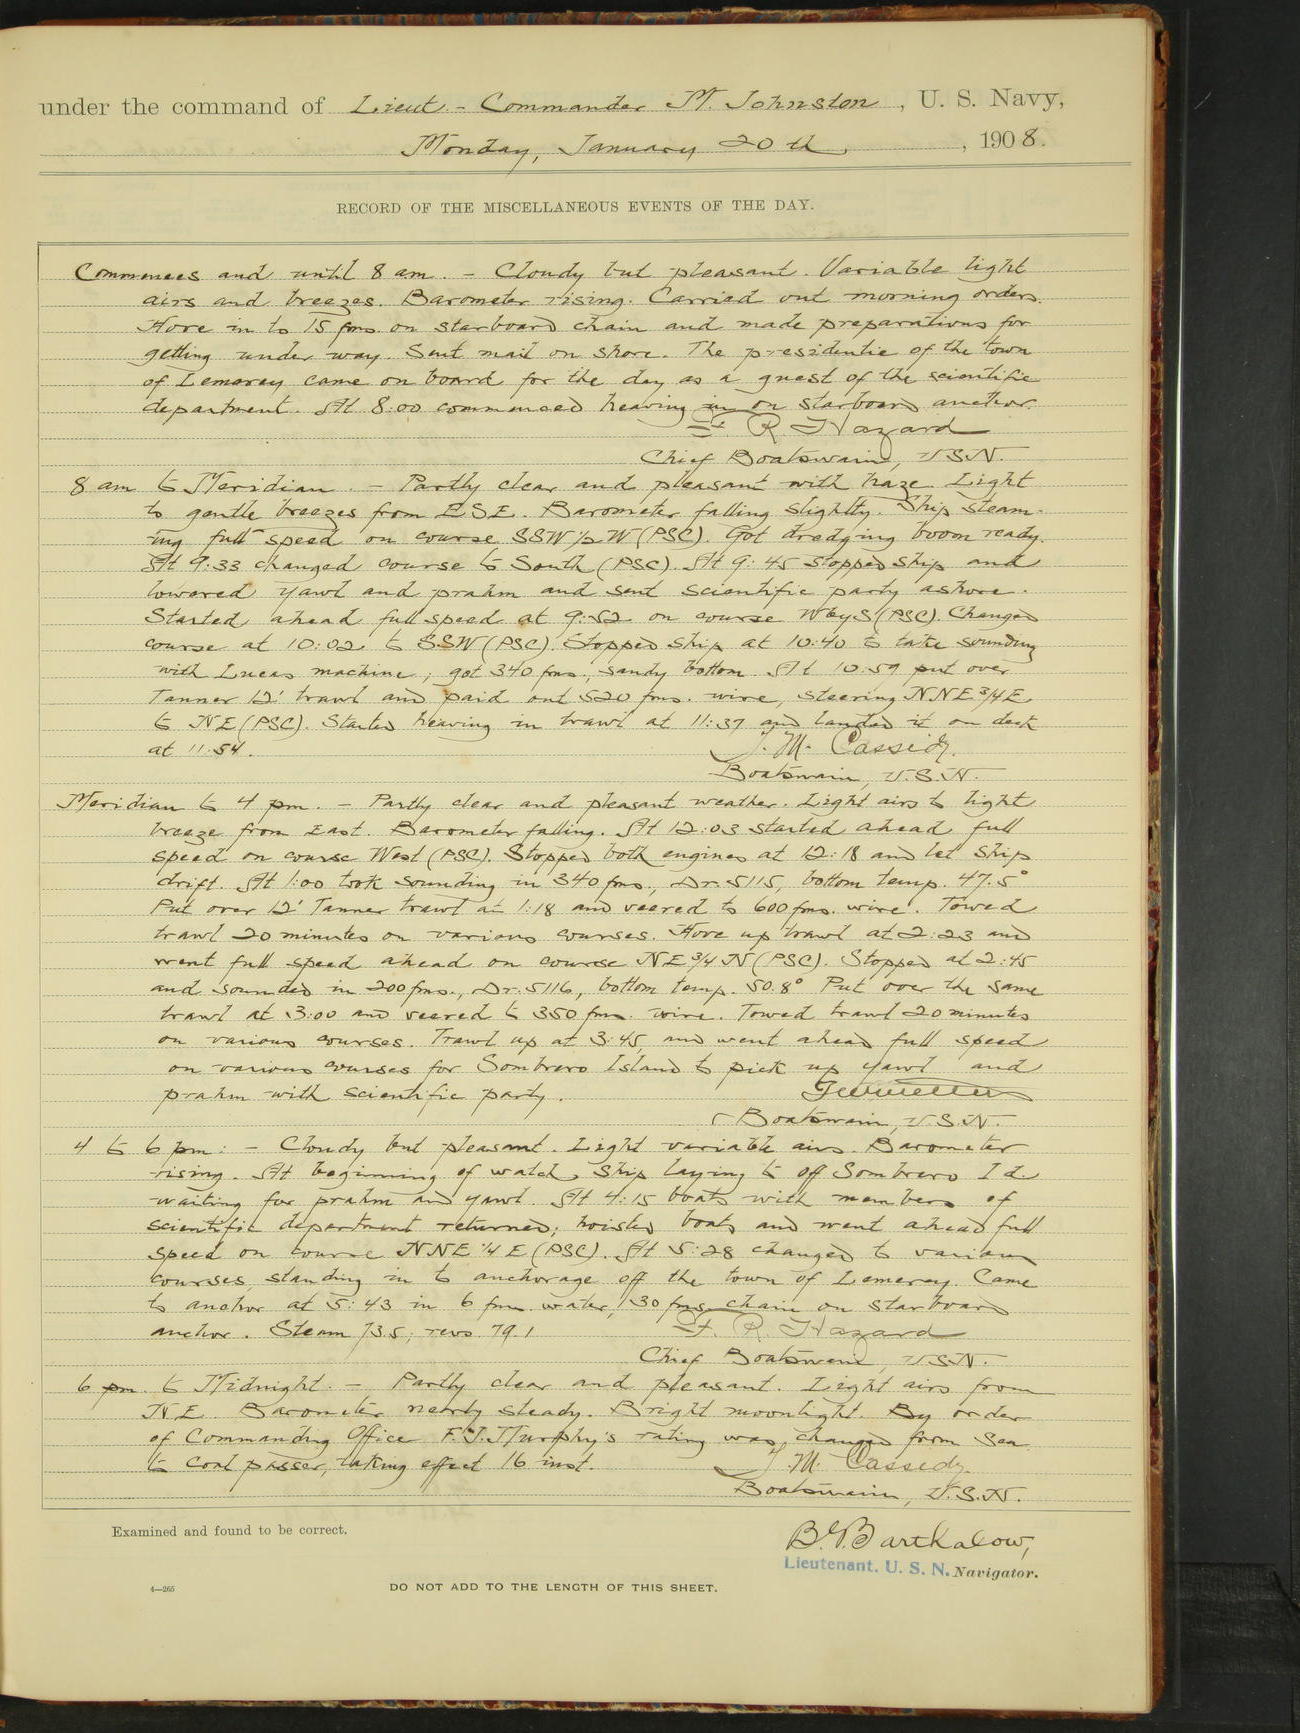 under the command of Lieut.- Commander M. Johnston, U. S. Navy,
Monday, January 20th, 1908.
RECORD OF THE MISCELLANEOUS EVENTS OF THE DAY.
Commences and until 8 am. - Cloudy but pleasant. Variable light
airs and breezes. Barometer rising. Carried out morning orders.
Hove in to 15 fms. on starboard chain and made preparations for
getting under way. Sent mail on shore. The presidentie of the town
of Lemerey came on board for the day as a guest of the scientific
department. At 8:00 commenced heaving in on starboard anchor.
F. R. Hazard
Chief Boatswain, U.S.N.
8 am to Meridian. - Partly clear and pleasant with haze. Light
to gentle breezes from ESE. Barometer falling slightly. Ship steam-
ing full speed on course SSW 1/2 W (PSC). Got dredging boom ready.
At 9:33 changed course to South (PSC). At 9:45 stopped ship and
lowered yawl and prahm and sent scientific party ashore.
Started ahead full speed at 9:52 on course WbyS (PSC). Changed
course at 10:02 to SSW (PSC). Stopped ship at 10:40 to take sounding
with Lucas machine, got 340 fms., sandy bottom. At 10:59 put over
Tanner 12' trawl and paid out 520 fms. wire, steering NNE 3/4 E
to NE (PSC). Started heaving in trawl at 11:37 and landed it on deck
at 11:54.
J. M. Cassidy.
Boatswain, U.S.N.
Meridian to 4 pm. - Partly clear and pleasant weather. Light airs to light
breeze from East. Barometer falling. At 12:03 started ahead full
speed on course West (PSC). Stopped both engines at 12:18 and let ship
drift. At 1:00 took sounding in 340 fms., Dr. 5115, bottom temp. 47.5°
Put over 12' Tanner trawl at 1:18 and veered to 600 fms. wire. Towed
trawl 20 minutes on various courses. Hove up trawl at 2:23 and
went full speed ahead on course NE 3/4 N (PSC). Stopped at 2:45
and sounded in 200 fms., Dr. 5116, bottom temp. 50.8° Put over the same
trawl at 3:00 and veered to 350 fms. wire. Towed trawl 20 minutes
on various courses. Trawl up at 3:45, and went ahead full speed
on various courses for Sombrero Island to pick up yawl and
prahm with scientific party.
Boatswain, U.S.N.
4 to 6 pm. - Cloudy but pleasant. Light variable airs. Barometer
rising. At beginning of watch, ship laying to off Sombrero Id.
waiting for prahm and yawl. At 4:15 boats with members of
scientific department returned; hoisted boats and went ahead full
speed on course NNE 1/4 E (PSC). At 5:28 changed to various
courses, standing in to anchorage off the town of Lemerey. Came
to anchor at 5:43 in 6 fms. water, 30 fms. chain on starboard
anchor. Steam 135; revs. 79.1
F. R. Hazard
Chief Boatswain, U.S.N.
6 pm. to Midnight. - Partly clear and pleasant. Light airs from
NE. Barometer nearly steady. Bright moonlight. By order
of Commanding Office F.J. Murphy's rating was changed from Sea
to Coal passer, taking effect 16 inst.
J. M. Cassidy.
Boatswain, U.S.N.
Examined and found to be correct.
B.G. Barthalow,
Lieutenant. U. S. N. Navigator.
4—265
DO NOT ADD TO THE LENGTH OF THIS SHEET.